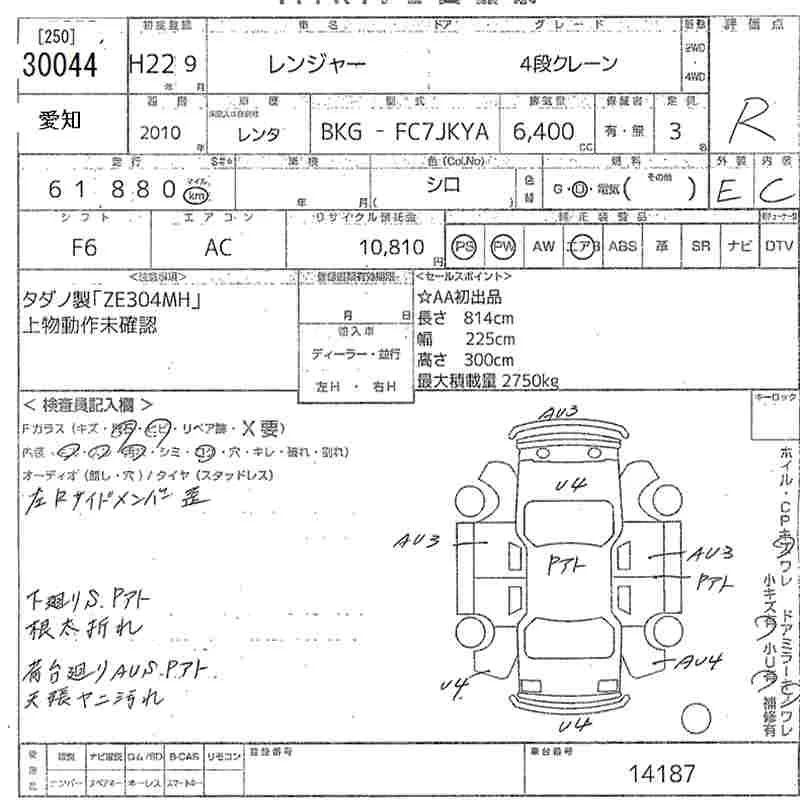 [250]
30044
初度登録
車名
ドア
グレード
評価点
H22 9
年 月
レンジャー
4段クレーン
2WD
・
4WD
R
愛知
2010 年
車歴
レンタ
型式
BKG - FC7JKYA
排気量
6,400 CC
有・無
定員
3 名
走行
車検
色(Col,No)
燃料
外装
内装
61 880 マイル km
年 月
シロ
色替
G・D・電気( その他 )
E
C
シフト
エアコン
リサイクル預託金
純正装備品
F6
AC
10,810 円
PS
PW
AW
エアB
ABS
革
SR
ナビ
DTV
<注意事項>
タダノ製「ZE304MH」
上物動作未確認
月 日
輸入車
ディーラー・並行
左H ・ 右H
<セールスポイント>
☆AA初出品
長さ 814cm
幅 225cm
高さ 300cm
最大積載量 2750kg
キーロック
< 検査員記入欄 >
Fガラス (キズ・ ・ヒビ・リペア跡・X要)
・シミ・ ・穴・キレ・破れ・割れ)
オーディオ (無し・穴) / タイヤ (スタッドレス)
左Rサイドメンバー 歪
下廻りS.Pアト
根太折れ
荷台廻りAUS.Pアト
天張ヤニ汚れ
AU3
U4
AU3
Pアト
AU3
Pアト
U4
AU4
U4
ホイル・CPキズワレ ドアミラーキズワレ
小キズ有 小U有 補修有
ナビ取説
ロム/SD
B-CAS
リモコン
ナンバー
スペアキー
キーレス
スマートキー
登録番号
車台番号
14187